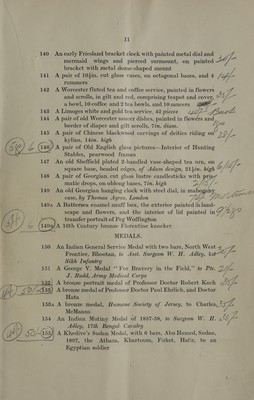 31
140 An early Friesland bracket clock with painted metal dial and
mermaid wings and pierced surmount, on painted
bracket with metal dome-shaped mound
141 A pair of 10½in. cut glass cases, on octagonal bases, and 4
rummers
142 A Worcester fluted tea and coffee service, painted in flowers
and scrolls, in gilt and red, comprising teapot and cover,
a bowl, 10 coffee and 2 tea bowls, and 10 saucers
143 A Limoges white and gold tea service, 42 pieces
144 A pair of old Worcester saucer dishes, painted in flowers and
border of diaper and gilt scrolls, 7in. diam.
145 A pair of Chinese blackwood carvings of deities riding on
kylins, 14in. high
146 A pair of Old English glass pictures—Interior of Hunting
Stables, pearwood frames
147 An old Sheffield plated 2-handled vase-shaped tea urn, on
square base, beaded edges, of Adam design, 21½in. high
148 A pair of Georgian cut glass lustre candlesticks with pris-
matic drops, on oblong bases, 7in. high
149 An old Georgian hanging clock with steel dial, in mahogany
case, by Thomas Agres, London
149A A Battersea enamel snuff box, the exterior painted in land-
scape and flowers, and the interior of lid painted in
transfer portrait of Peg Woffington
149B A 16th Century bronze Florentine knocker
MEDALS.
150 An Indian General Service Medal with two bars, North West
Frontier, Bhootan, to Asst. Surgeon W. H. Adley, 1st
Sikh Infantry
151 A George V. Medal "For Bravery in the Field," to Pte.
J. Rudd, Army Medical Corps
152 A bronze portrait medal of Professor Doctor Robert Koch
153 A bronze medal of Professor Doctor Paul Ehrlich, and Doctor
Hata
153A A bronze medal, Humane Society of Jersey, to Charles
McManan
154 An Indian Mutiny Medal of 1857-58, to Surgeon W. H.
Adley, 17th Bengal Cavalry
155 A Khedive's Sudan Medal, with 6 bars, Abu Hamed, Sudan,
1897, the Atbara, Khartoum, Firket, Hafir, to an
Egyptian soldier